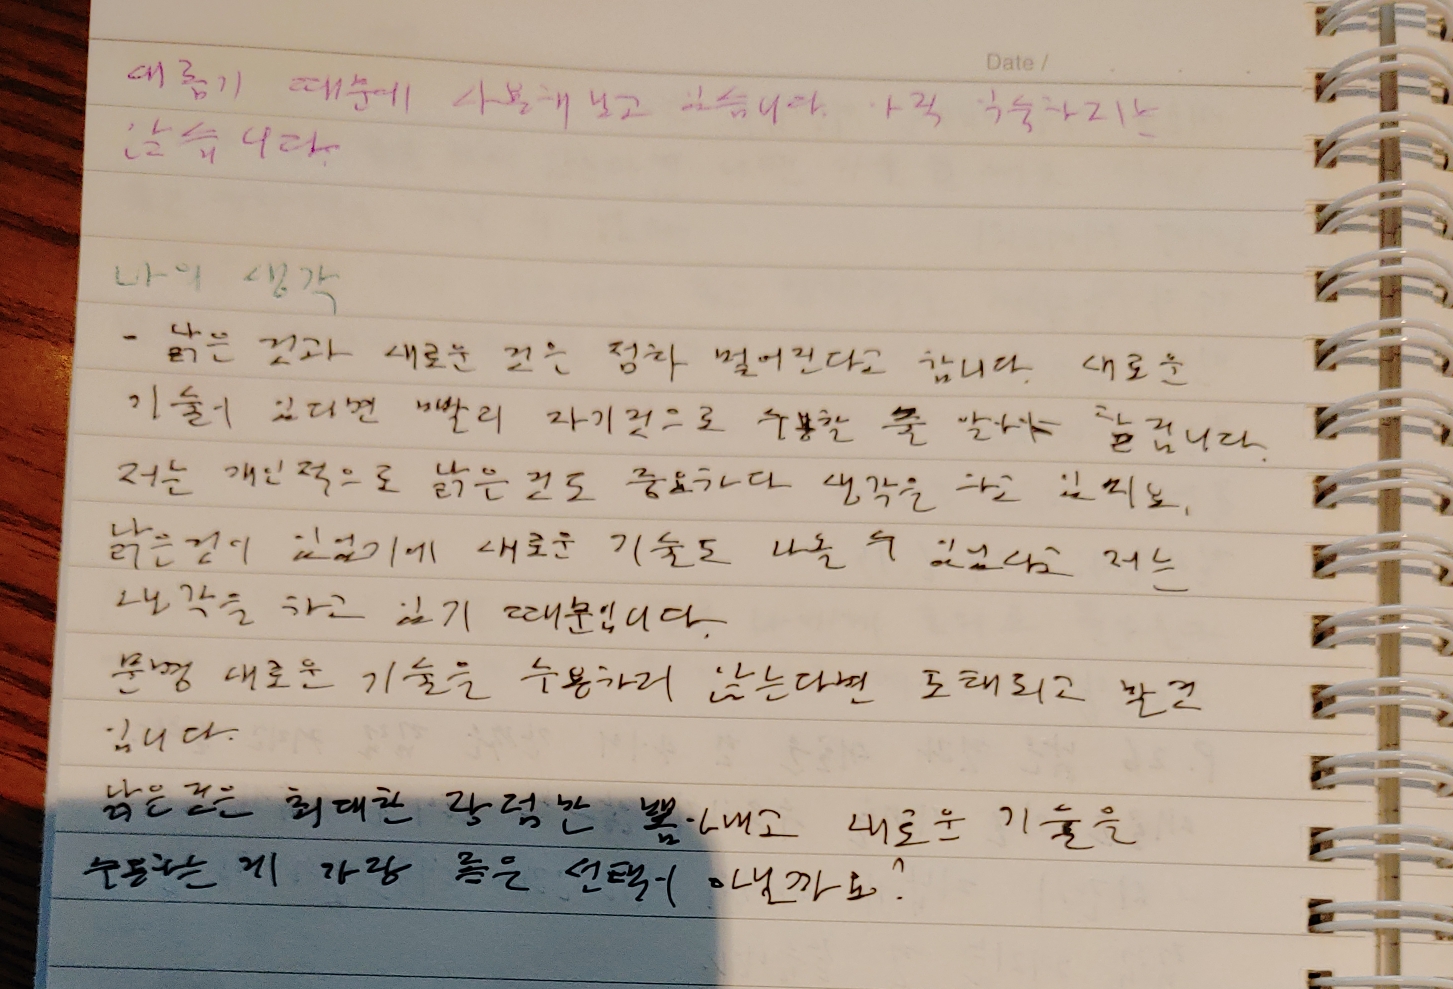 Date /
새롭기 때문에 사용해 보고 있습니다. 아직 익숙하지는
않습니다.
나의 생각
- 낡은 것과 새로운 것은 점차 멀어진다고 합니다. 새로운
기술이 있다면 빨리 자기것으로 수용할 줄 알아야 할 겁니다.
저는 개인적으로 낡은것도 중요하다 생각을 하고 있지요,
낡은것이 있었기에 새로운 기술도 나올 수 있었다고 저는
생각을 하고 있기 때문입니다.
분명 새로운 기술을 수용하지 않는다면 도태되고 말 것
입니다.
낡은것은 최대한 장점만 뽑아내고 새로운 기술을
수용하는 게 가장 좋은 선택이 아닐까요?